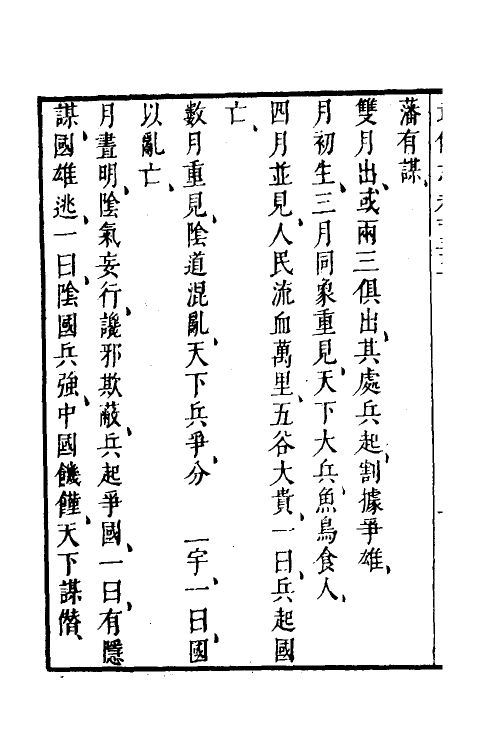 藩有謀、
雙月出、或兩三俱出、其處兵起、割據爭雄、
月初生、三月同象重見、天下大兵、魚鳥食人、
四月並見、人民流血萬里、五谷大貴、一曰、兵起國
亡、
數月重見、陰道混亂、天下兵爭、分 一宇、一曰、國
以亂亡、
月晝明、陰氣妄行、讒邪欺蔽、兵起爭國、一曰、有隱
謀、國雄逃、一曰、陰國兵強、中國饑饉、天下謀僭、